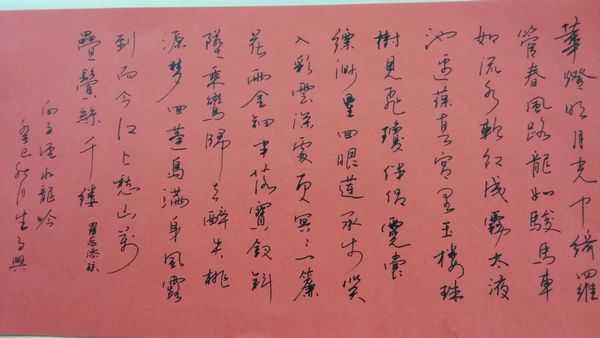 華燈明月光中綺羅
管春風路龍如駿馬車
如流水軟紅成霧太液
池邊葆真宮里玉樓珠
樹見飛瓊伴侶霓裳
縹緲星回眼蓮承步笑
入彩雲深處更冥〻一簾
花雨金鈿半落寶釵斜
墜乘鸞歸去醉失桃
源夢回蓬島滿身風露
到而今江上愁山萬
疊鬢絲千縷
向子諲水龍吟
辛巳秋月